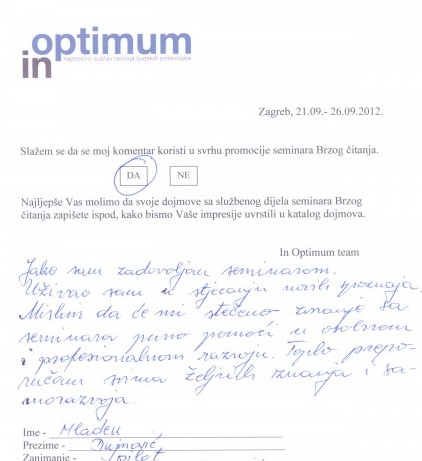 in optimum
najmoćniji sustav razvoja ljudskih potencijala
Zagreb, 21.09.- 26.09.2012.
Slažem se da se moj komentar koristi u svrhu promocije seminara Brzog čitanja.
DA NE
Najljepše Vas molimo da svoje dojmove sa službenog dijela seminara Brzog
čitanja zapišete ispod, kako bismo Vaše impresije uvrstili u katalog dojmova.
In Optimum team
Jako sam zadovoljan seminarom.
Uživao sam u stjecanju novih spoznaja.
Mislim da će mi stečeno znanje sa
seminara puno pomoći u osobnom
i profesionalnom razvoju. Toplo prepo-
ručam svima željnih znanja i sa-
morazvoja.
Ime - Mladen
Prezime - Dujmović
Zanimanje - pilot